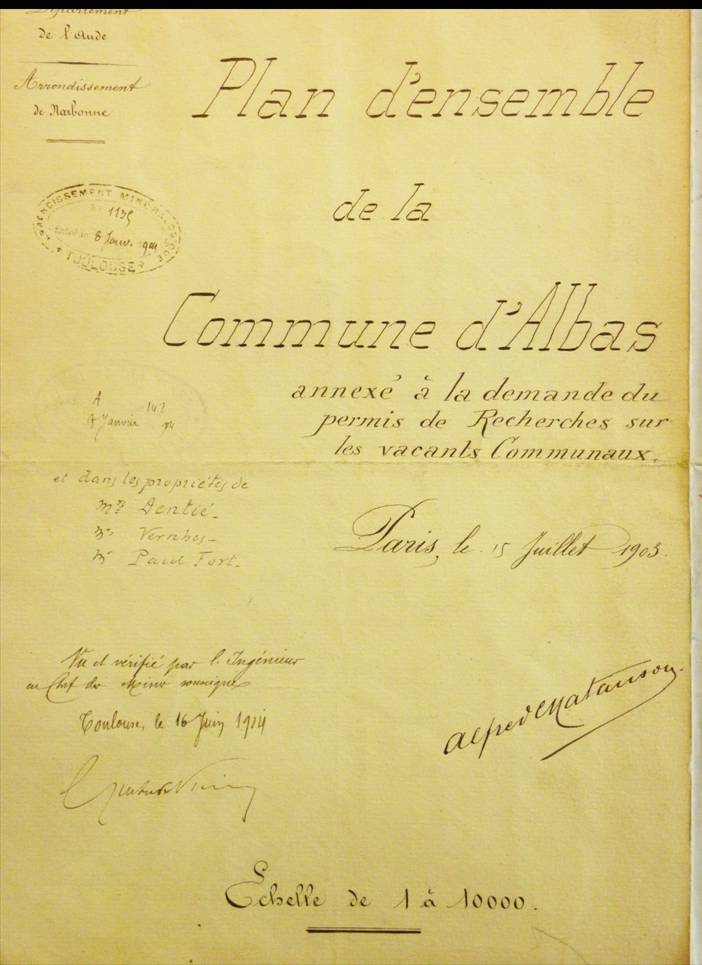 Département
de l'Aude
Arrondissement
de Narbonne
Plan d'ensemble
de la
Commune d'Albas
annexé à la demande du
permis de Recherches sur
les vacants Communaux.
ARRONDISSEMENT MINÉRALOGIQUE
1135
8 Janv.
TOULOUSE
A
Janvier
et dans les propriétés de
Mr Dentié
Mr Vernhes
Mr Paul Fort
Paris, le 15 Juillet 1903.
Vu et vérifié par l'Ingénieur
en Chef des Mines soussigné
Toulouse, le 16 Juin 1904
Alfred Natanson.
Echelle de 1 à 10000.